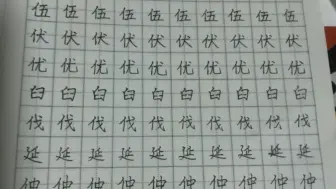 伍伍伍伍伍伍伍伍伍伍
伏伏伏伏伏伏伏伏伏伏
优优优优优优优优优优
臼臼臼臼臼臼臼臼臼臼
伐伐伐伐伐伐伐伐伐伐
延延延延延延延延延延
仲仲仲仲仲仲仲仲仲仲